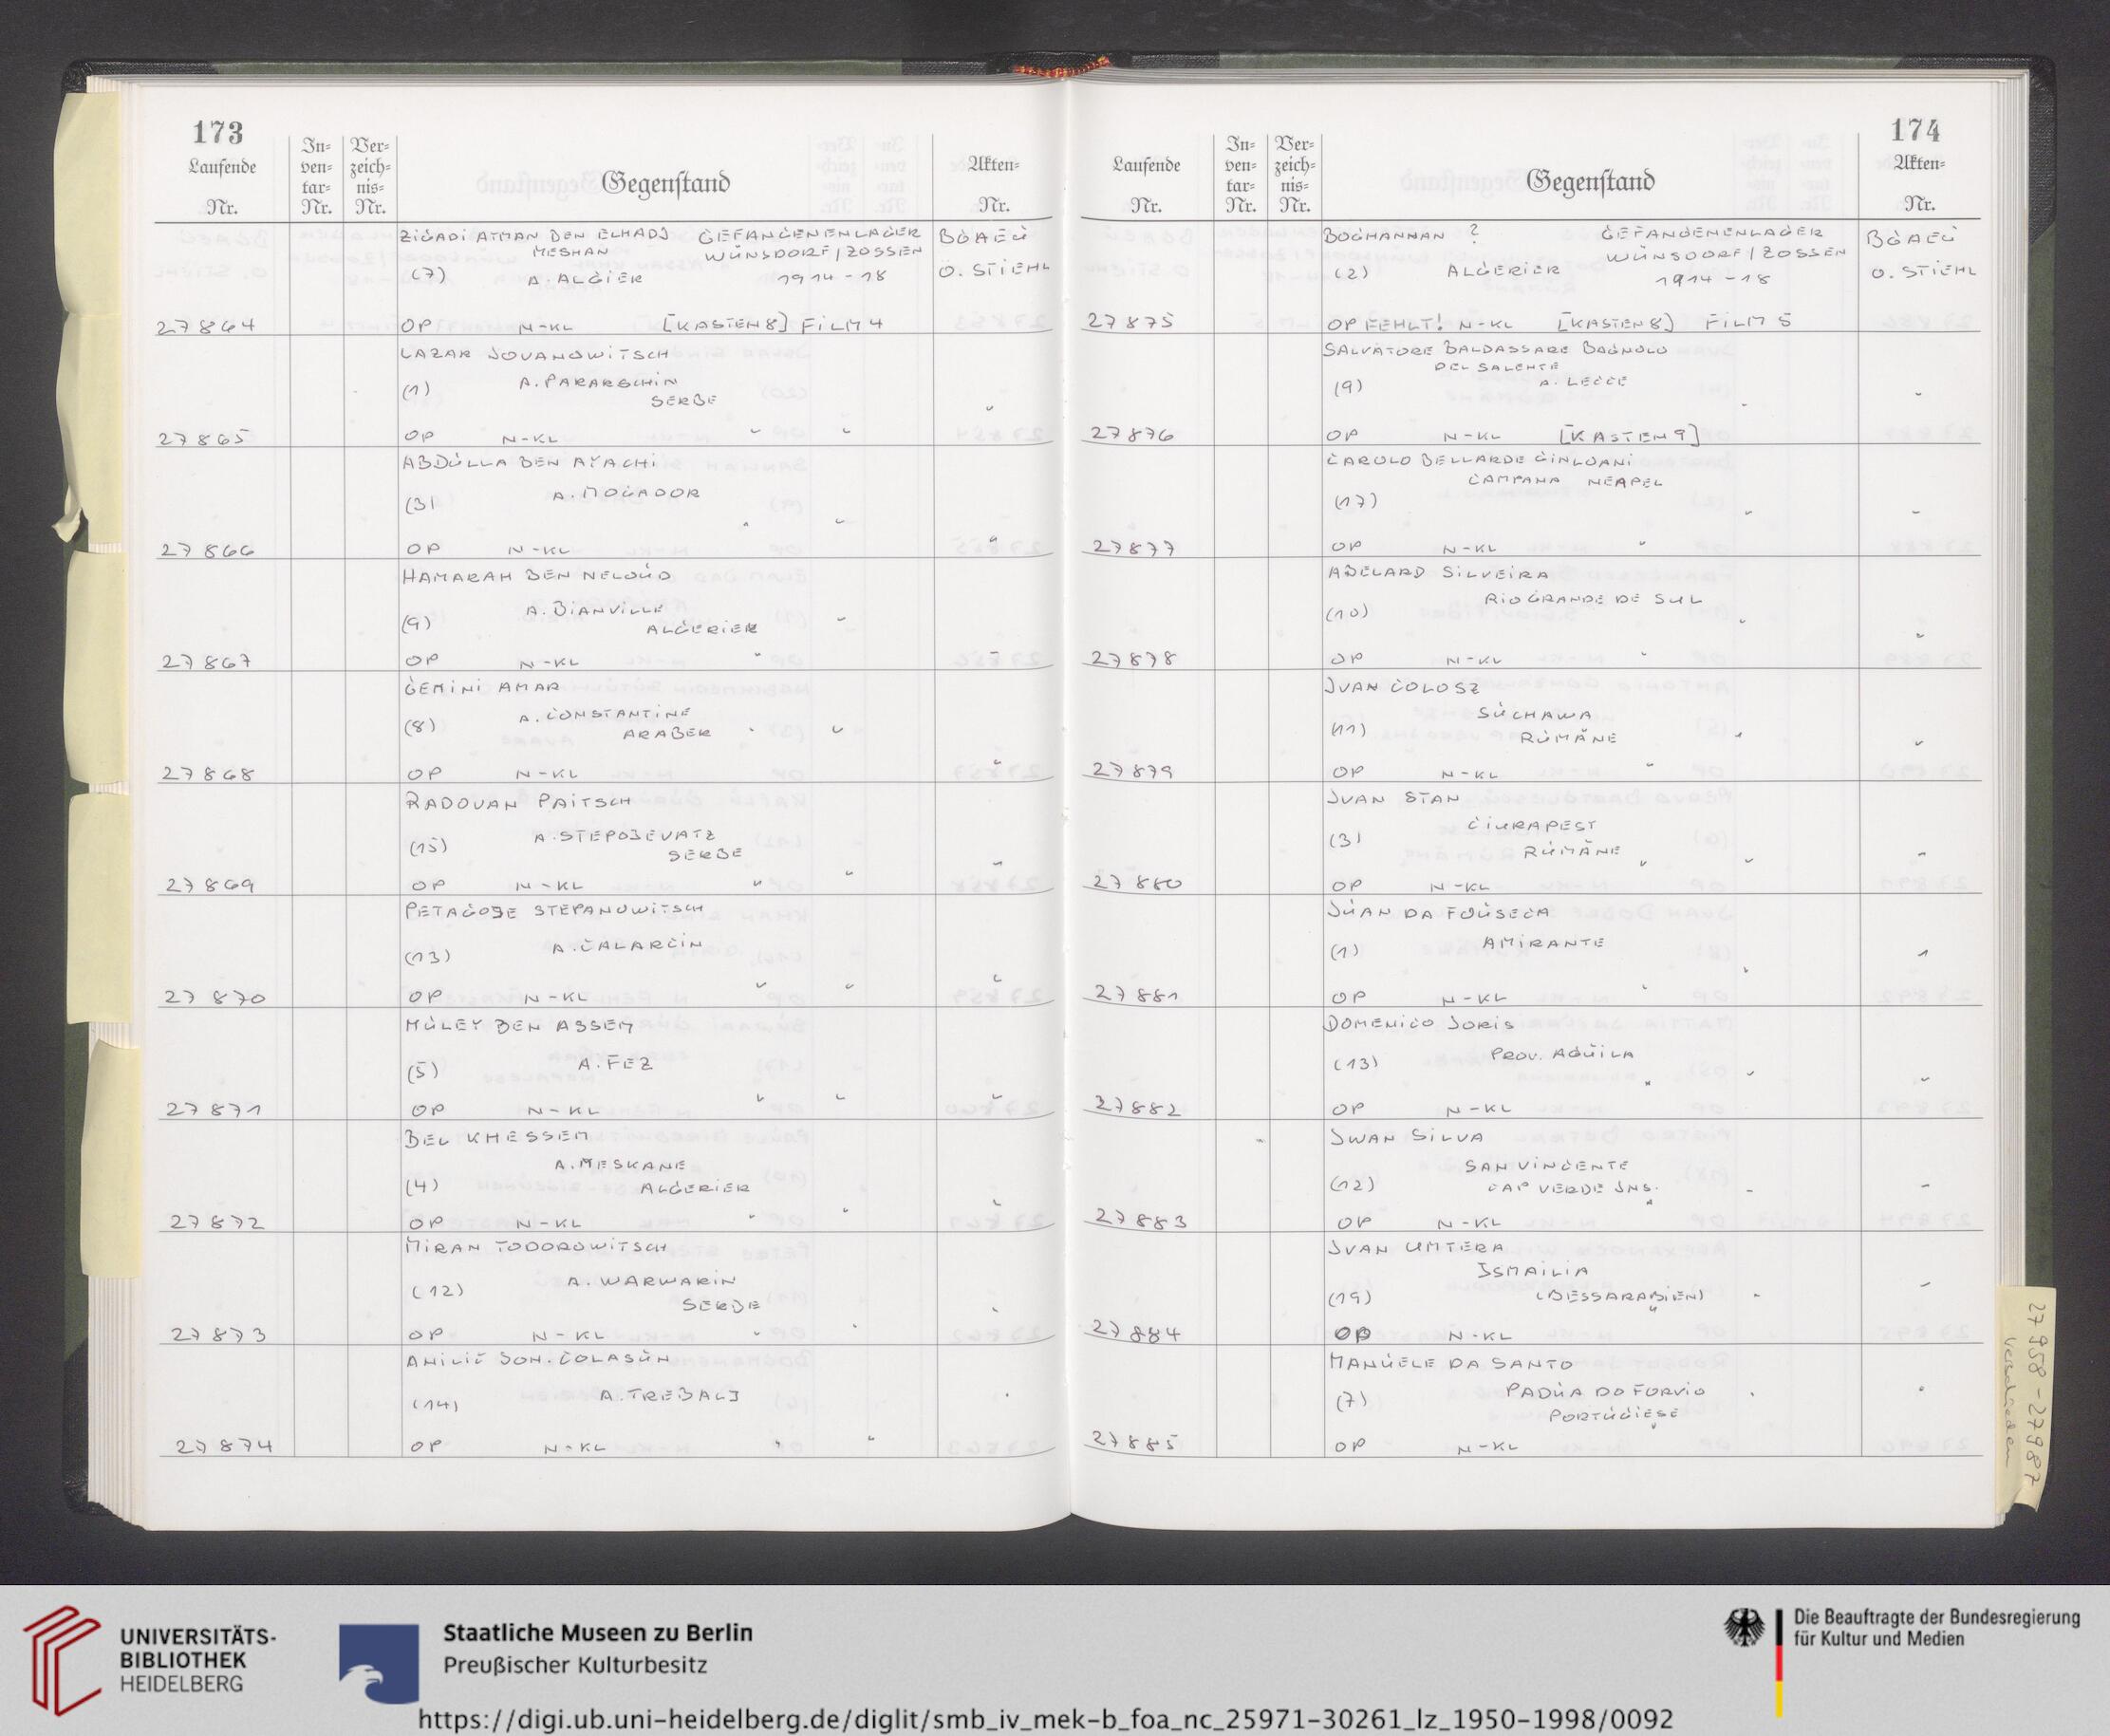 173
Laufende Nr.
In-ven-tar-Nr.
Ver-zeich-nis-Nr.
Gegenstand
Akten-Nr.
ZIGADI ATMAN BEN ELHADJ GEFANGENENLAGER BGAEG
MESHAN WÜNSDORF/ZOSSEN
(7) A. ALGIER 1914-18 O. STIEHL
27864 OP N-KL [KASTEN 8] FILM 4
LAZAR JOVANOWITSCH
(1) A. PARARSCHIN
SERBE "
27865 OP N-KL " "
ABDULLA BEN AYACHI
(3) A. MOGADOR
" "
27866 OP N-KL "
HAMARAH BEN NELOUD
(9) A. BIANVILLE
ALGERIER "
27867 OP N-KL " "
GEMINI AMAR
(8) A. CONSTANTINE
ARABER " "
27868 OP N-KL "
RADOVAN PAITSCH
(15) A. STEPOJEVATZ
SERBE "
27869 OP N-KL " "
PETAGOJE STEPANOWITSCH
(13) A. CALARCIN
" " "
27870 OP N-KL
MULEY BEN ASSEM
(5) A. FEZ
" " "
27871 OP N-KL
BEL KHESSEM
A. MESKANE
(4) ALGERIER "
27872 OP N-KL " "
MIRAN TODOROWITSCH
(12) A. WARWARIN
SERBE "
27873 OP N-KL " "
AHILIC JOH. COLASUN
(14) A. TREBALJ "
27874 OP N-KL " "
174
Laufende Nr.
In-ven-tar-Nr.
Ver-zeich-nis-Nr.
Gegenstand
Akten-Nr.
BOGHANNAN ? GEFANGENENLAGER BGAEG
WÜNSDORF/ZOSSEN
(2) ALGERIER 1914-18 O. STIEHL
27875 OP FEHLT! N-KL [KASTEN 8] FILM 5
SALVATORE BALDASSARE BAGNOLO
DEL SALENTE
(9) A. LECCE
" "
27876 OP N-KL [KASTEN 9]
CAROLO BELLARDE
CAMPANA NEAPEL
(17)
" "
27877 OP N-KL "
ABELARD SILVEIRA
RIO GRANDE DE SUL
(10)
" "
27878 OP N-KL "
JVAN COLOSZ
SUCHAWA
(11) RUMÄNE " "
27879 OP N-KL "
JVAN STAN
CIURAPEST
(3) RUMÄNE " " "
27880 OP N-KL
JUAN DA FOUSECA
(1) AMIRANTE "
"
27881 OP N-KL "
DOMENICO JORIS
(13) PROV. AQUILA
" " "
27882 OP N-KL
JWAN SILVA
SAN VINCENTE
(12) CAP VERDE JNS. " "
"
27883 OP N-KL
JVAN UMTERA
JSMAILIA
(19) (BESSARABIEN) " "
"
27884 OP N-KL
MANUELE DA SANTO
(7) PADUA DO FORVIO " "
PORTUGIESE
"
27885 OP N-KL
27958-27987
verschieden
UNIVERSITÄTS-
BIBLIOTHEK
HEIDELBERG
Staatliche Museen zu Berlin
Preußischer Kulturbesitz
Die Beauftragte der Bundesregierung
für Kultur und Medien
https://digi.ub.uni-heidelberg.de/diglit/smb_iv_mek-b_foa_nc_25971-30261_lz_1950-1998/0092